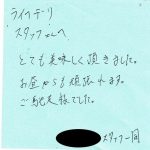 ライフデリ
スタッフさんへ
とても美味しく頂きました。
お昼からも頑張れます。
ご馳走様でした。
スタッフ一同